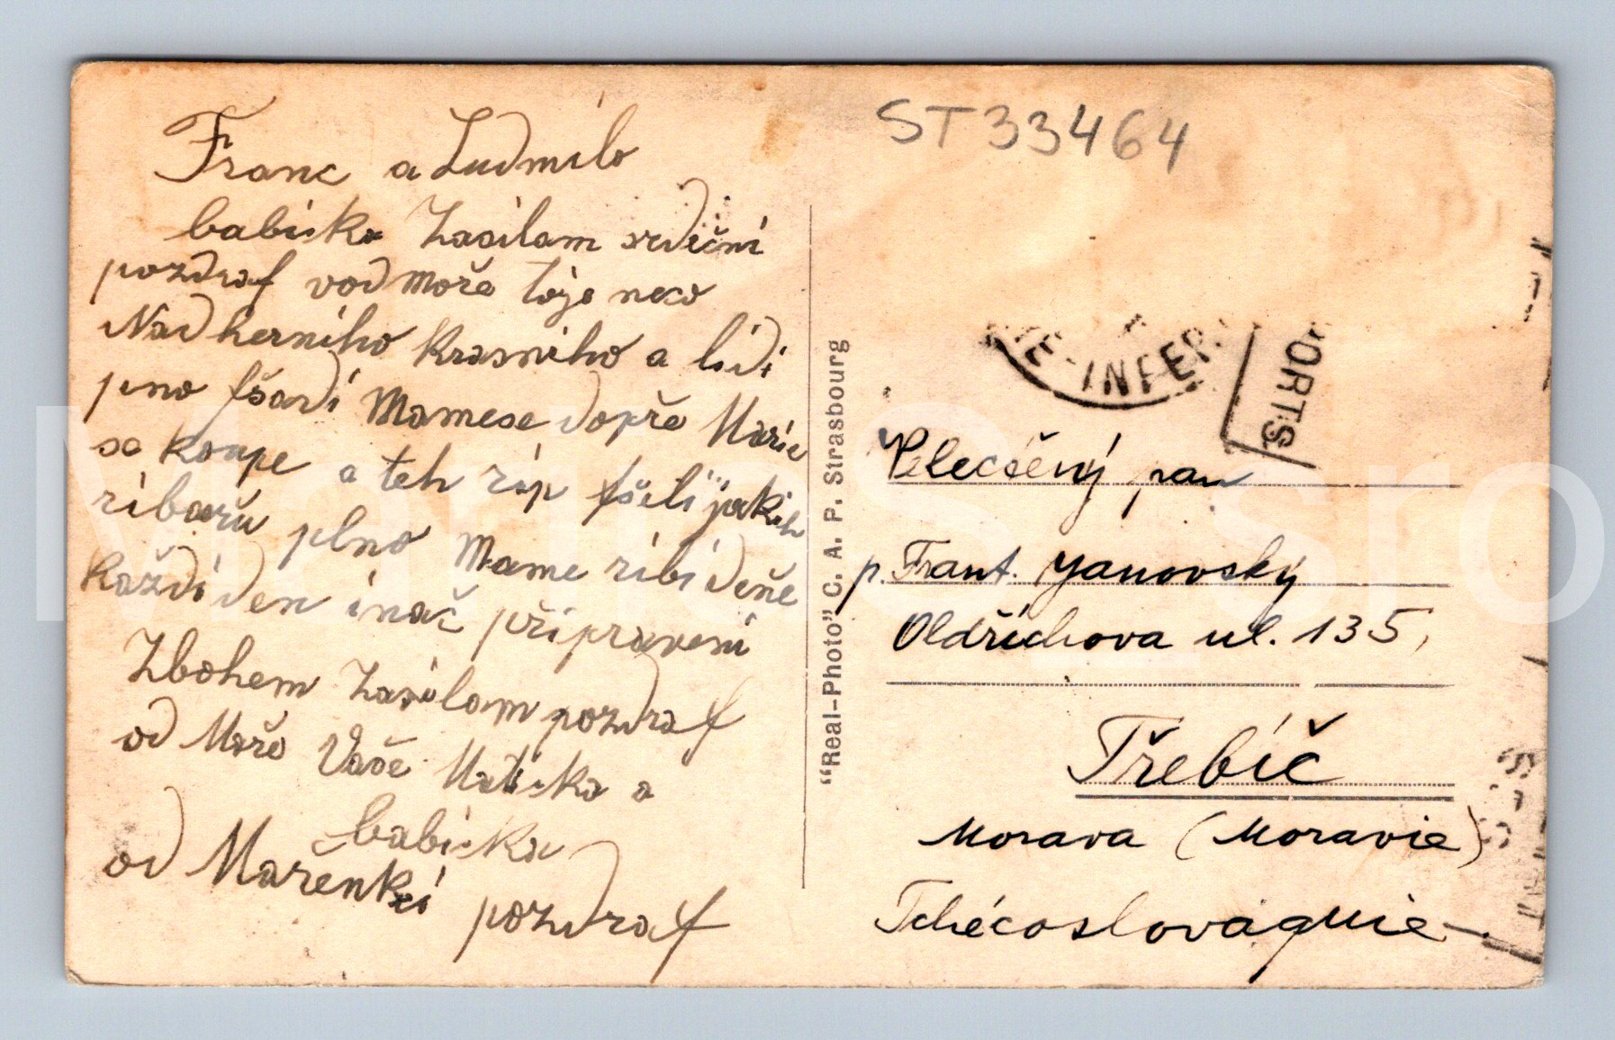 Franc a Ludmilo
babička Zasilam srdični
pozdraf vod moře toje neco
Nadherniho krasniho a lidi
pno fšadi Mamese dopře Marie
se koupe a teh rip fšelijakih
ribařu plno Mame ribi deňe
každi den inač připraveni
Zbohem Zasilam pozdraf
od Mořo Vaše Matička a
babička
od Mařenki pozdraf
ST33464
IE-INFER
PORTS
"Real-Photo" C. A. P. Strasbourg
Velectěný pan
p. Frant. Janovský
Oldřichova ul. 135,
Třebíč
Morava (Moravie)
Tchécoslovaquie